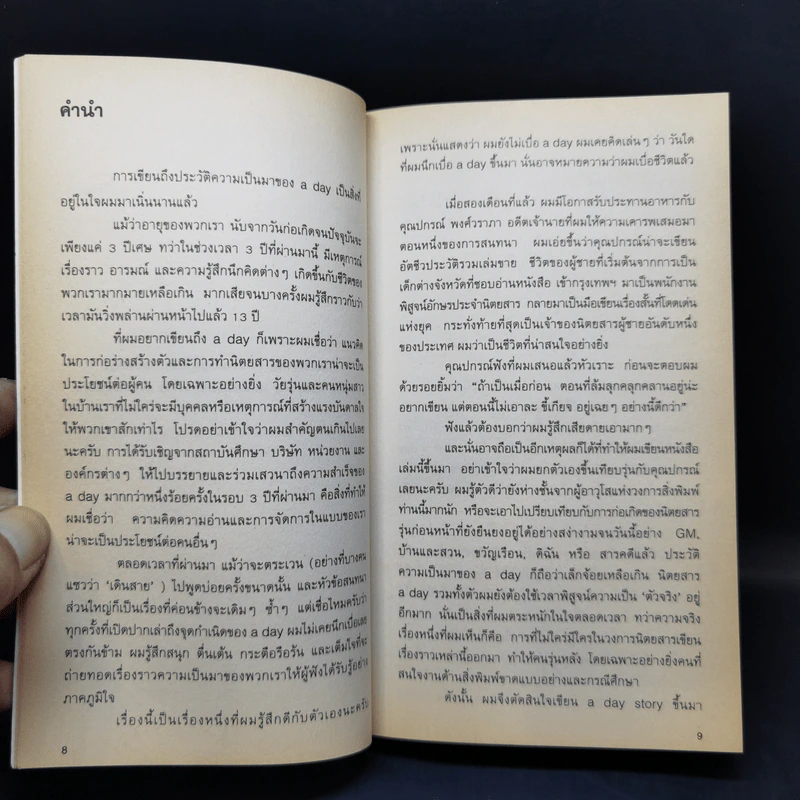 คำนำ
การเขียนถึงประวัติความเป็นมาของ a day เป็นสิ่งที่
อยู่ในใจผมมาเนิ่นนานแล้ว
แม้ว่าอายุของพวกเรา นับจากวันก่อเกิดจนปัจจุบันจะ
เพียงแค่ 3 ปีเศษ ทว่าในช่วงเวลา 3 ปีที่ผ่านมานี้ มีเหตุการณ์
เรื่องราว อารมณ์ และความรู้สึกนึกคิดต่างๆ เกิดขึ้นกับชีวิตของ
พวกเรามากมายเหลือเกิน มากเสียจนบางครั้งผมรู้สึกราวกับว่า
เวลามันวิ่งพล่านผ่านหน้าไปแล้ว 13 ปี
ที่ผมอยากเขียนถึง a day ก็เพราะผมเชื่อว่า แนวคิด
ในการก่อร่างสร้างตัวและการทำนิตยสารของพวกเราน่าจะเป็น
ประโยชน์ต่อผู้คน โดยเฉพาะอย่างยิ่ง วัยรุ่นและคนหนุ่มสาว
ในบ้านเราที่ไม่ใคร่จะมีบุคคลหรือเหตุการณ์ที่สร้างแรงบันดาลใจ
ให้พวกเขาสักเท่าไร โปรดอย่าเข้าใจว่าผมสำคัญตนเกินไปเลย
นะครับ การได้รับเชิญจากสถาบันศึกษา บริษัท หน่วยงาน และ
องค์กรต่างๆ ให้ไปบรรยายและร่วมเสวนาถึงความสำเร็จของ
a day มากกว่าหนึ่งร้อยครั้งในรอบ 3 ปีที่ผ่านมา คือสิ่งที่ทำให้
ผมเชื่อว่า ความคิดความอ่านและการจัดการในแบบของเรา
น่าจะเป็นประโยชน์ต่อคนอื่นๆ
ตลอดเวลาที่ผ่านมา แม้ว่าจะตระเวน (อย่างที่บางคน
แซวว่า ‘เดินสาย’ ) ไปพูดบ่อยครั้งขนาดนั้น และหัวข้อสนทนา
ส่วนใหญ่ก็เป็นเรื่องที่ค่อนข้างจะเดิมๆ ซ้ำๆ แต่เชื่อไหมครับว่า
ทุกครั้งที่เปิดปากเล่าถึงจุดกำเนิดของ a day ผมไม่เคยนึกเบื่อเลย
ตรงกันข้าม ผมรู้สึกสนุก ตื่นเต้น กระตือรือร้น และเต็มใจที่จะ
ถ่ายทอดเรื่องราวความเป็นมาของพวกเราให้ผู้ฟังได้รับรู้อย่าง
ภาคภูมิใจ
เรื่องนี้เป็นเรื่องหนึ่งที่ผมรู้สึกดีกับตัวเองนะครับ
8
เพราะนั่นแสดงว่า ผมยังไม่เบื่อ a day ผมเคยคิดเล่นๆ ว่า วันใด
ที่ผมนึกเบื่อ a day ขึ้นมา นั่นอาจหมายความว่าผมเบื่อชีวิตแล้ว
เมื่อสองเดือนที่แล้ว ผมมีโอกาสรับประทานอาหารกับ
คุณปกรณ์ พงศ์วราภา อดีตเจ้านายที่ผมให้ความเคารพเสมอมา
ตอนหนึ่งของการสนทนา ผมเอ่ยขึ้นว่าคุณปกรณ์น่าจะเขียน
อัตชีวประวัติรวมเล่มขาย ชีวิตของผู้ชายที่เริ่มต้นจากการเป็น
เด็กต่างจังหวัดที่ชอบอ่านหนังสือ เข้ากรุงเทพฯ มาเป็นพนักงาน
พิสูจน์อักษรประจำนิตยสาร กลายมาเป็นมือเขียนเรื่องสั้นที่โดดเด่น
แห่งยุค กระทั่งท้ายที่สุดเป็นเจ้าของนิตยสารผู้ชายอันดับหนึ่ง
ของประเทศ ผมว่าเป็นชีวิตที่น่าสนใจอย่างยิ่ง
คุณปกรณ์ฟังที่ผมเสนอแล้วหัวเราะ ก่อนจะตอบผม
ด้วยรอยยิ้มว่า “ถ้าเป็นเมื่อก่อน ตอนที่ล้มลุกคลุกคลานอยู่น่ะ
อยากเขียน แต่ตอนนี้ไม่เอาละ ขี้เกียจ อยู่เฉยๆ อย่างนี้ดีกว่า”
ฟังแล้วต้องบอกว่าผมรู้สึกเสียดายเอามากๆ
และนั่นอาจถือเป็นอีกเหตุผลก็ได้ที่ทำให้ผมเขียนหนังสือ
เล่มนี้ขึ้นมา อย่าเข้าใจว่าผมยกตัวเองขึ้นเทียบรุ่นกับคุณปกรณ์
เลยนะครับ ผมรู้ตัวดีว่ายังห่างชั้นจากผู้อาวุโสแห่งวงการสิ่งพิมพ์
ท่านนี้มากนัก หรือจะเอาไปเปรียบเทียบกับการก่อเกิดของนิตยสาร
รุ่นก่อนหน้าที่ยังยืนยงอยู่ได้อย่างสง่างามจนวันนี้อย่าง GM,
บ้านและสวน, ขวัญเรือน, ดิฉัน หรือ สารคดีแล้ว ประวัติ
ความเป็นมาของ a day ก็ถือว่าเล็กจ้อยเหลือเกิน นิตยสาร
a day รวมทั้งตัวผมยังต้องใช้เวลาพิสูจน์ความเป็น ‘ตัวจริง’ อยู่
อีกมาก นั่นเป็นสิ่งที่ผมตระหนักในใจตลอดเวลา ทว่าความจริง
เรื่องหนึ่งที่ผมเห็นก็คือ การที่ไม่ใคร่มีใครในวงการนิตยสารเขียน
เรื่องราวเหล่านี้ออกมา ทำให้คนรุ่นหลัง โดยเฉพาะอย่างยิ่งคนที่
สนใจงานด้านสิ่งพิมพ์ขาดแบบอย่างและกรณีศึกษา
ดังนั้น ผมจึงตัดสินใจเขียน a day story ขึ้นมา
9